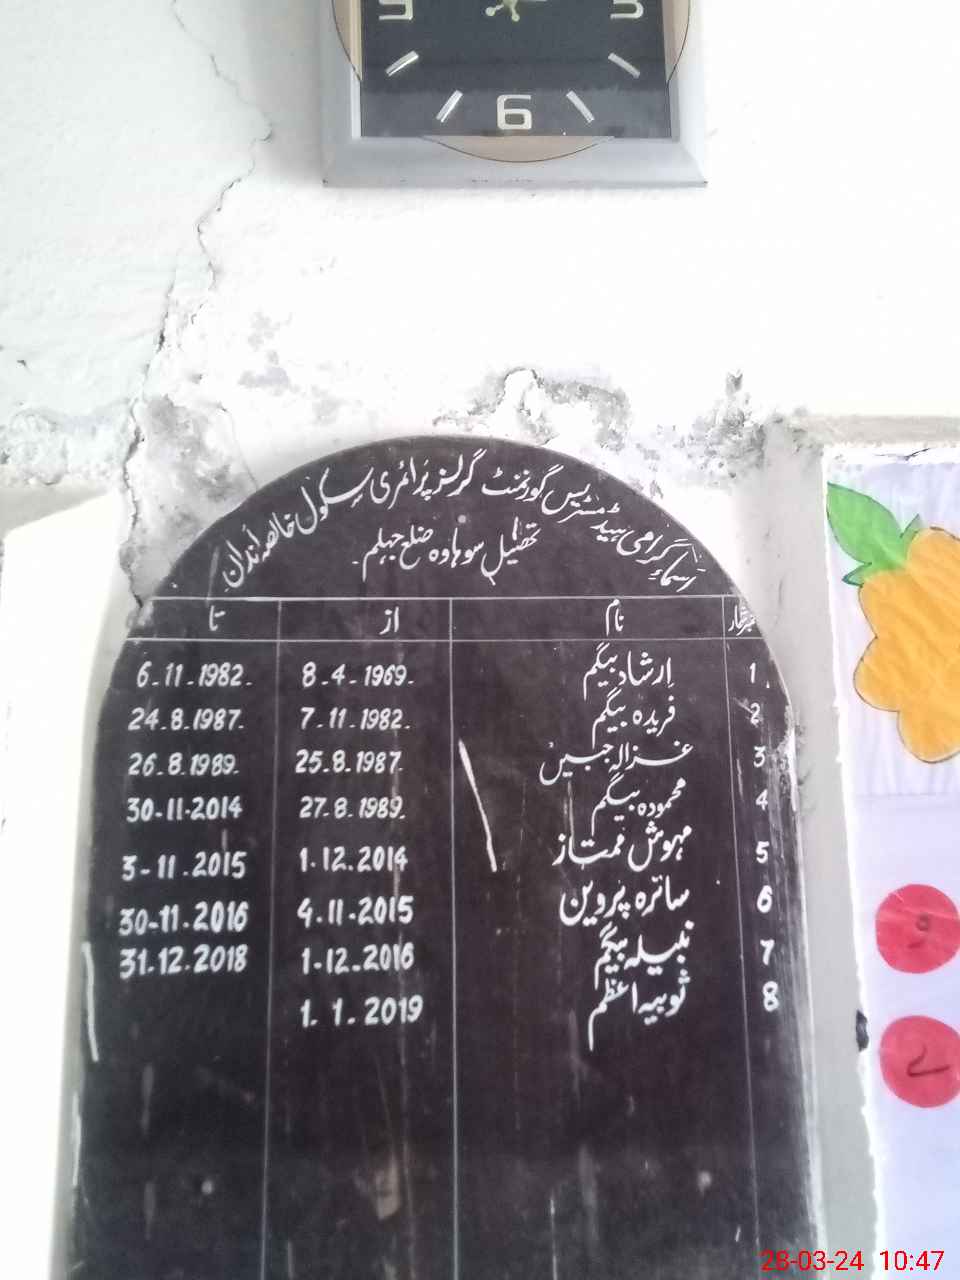 6
اسمائے گرامی ہیڈ مسٹریس گورنمنٹ گرلز پرائمری سکول خالصہ لُندان
تحصیل سوہاوہ ضلع جہلم۔
نمبرشمار نام از تا
1 اِرشاد بیگم 8-4-1969. 6-11-1982.
2 فریدہ بیگم 7-11-1982. 24.8.1987.
3 غزالہ جبیں 25.8.1987. 26.8.1989.
4 محمودہ بیگم 27-8-1989. 30-11-2014
5 مہوش ممتاز 1.12.2014 3-11.2015
6 سائرہ پروین 4-11-2015 30-11-2016
7 نبیلہ بیگم 1-12-2016 31.12.2018
8 ثوبیہ اعظم 1. 1. 2019
28-03-24 10:47